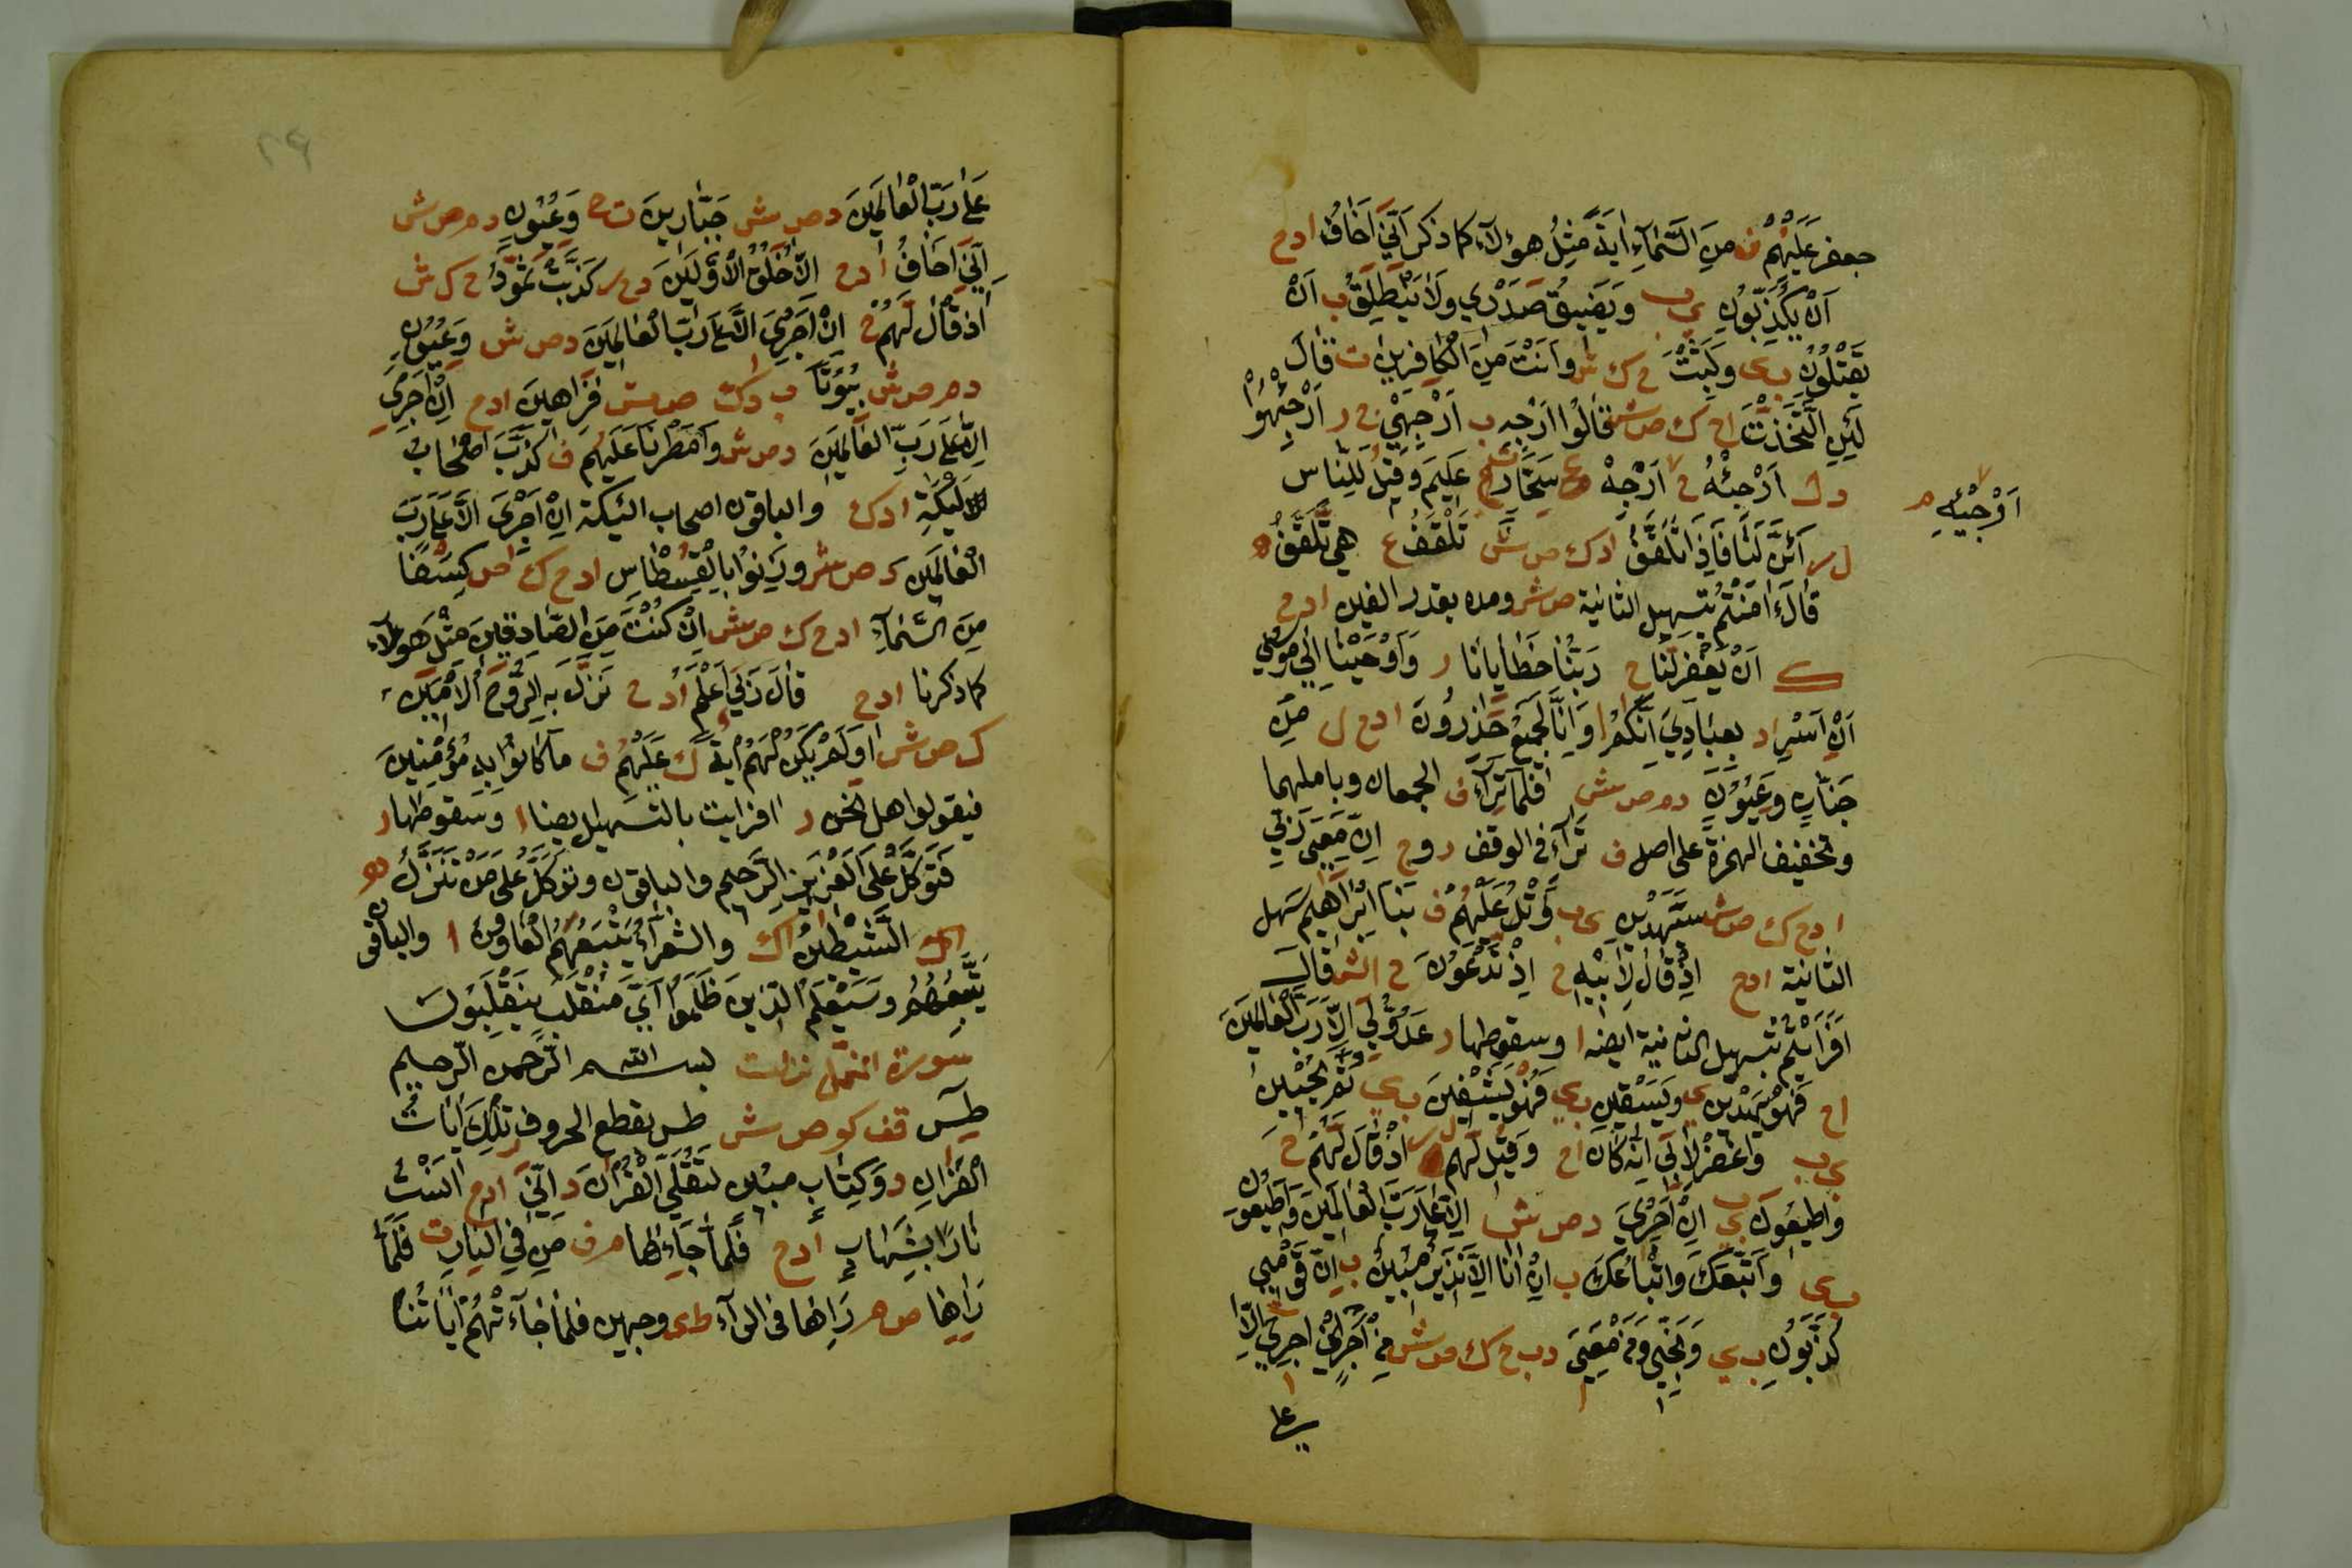 جعفر عَلَيْهُمْ ف مِنَ السَّمَآءِ ايَةً مِثْلُ هؤلاء كما ذكر اَنِّيَ اَخَافُ ادح
اَنْ يُكَذِّبُونِ ى ب وَيَضِيقُ صَدْرِي وَلَا يَنْطَلِقُ ب اَنْ
يَقْتُلُونِ ب ى وَلَبِثْتَ ح ك ش وَاَنْتَ مِنَ الْكَافِرِينَ ت قَالَ
لَئِنِ اتَّخَذْتَ اح ك ص ش قَالُوا اَرْجِهِ ب اَرْجِهِيْ ح ر اَرْجِئْهُوْا
دل اَرْجِئْهُ ح اَرْجِهْ سَحَّارٍ عَلِيم وَقِيلَ لِلنَّاس
اَرْجِئْهِ م
ل ر اَئِنَّ لَنَا فَاِذَا تَلَقَّفُ ادك ص ش تَلْقَفُ ع هِي تَّلَقَّفُ ه
قَالَ ءَامَنْتُمْ بتسهيل الثانية ص ش ومده بقدر الفين ادح
ك اَنْ يَغْفِر لَنَا ح رَبُّنَا خَطَايَانَا ر وَاَوْحَيْنَا اِلَى مُوسٰى
اَنِ اسْرِ اد بِعِبَادِيَ اِنَّكُمْ ا وَاِنَّا لَجَمِيعٌ حَذِرُونَ ادح ل مِنْ
جَنَّاتٍ وَعِيُونٍ دم ص ش فَلَمَّا تَرَآءَ ف الجمعان وباملهما
وتخفيف الهمزة على اصل ف تَرَآءَ فى الوقف روح اِنَّ مَعِيَ رَبِّي
ادح ك ص ش سَيَهْدِينِ ى ب وَاتْلُ عَلَيْهُمْ ف نَبَاَ اِبْرَاهِيم سهل
الثانية ادح اِذْ قَال لِاَبِيْهِ ح اِذْ تَدْعُونَ ح الش قال
اَفَرَاَيْتُم بتسهيل الثانية ايضا ا وسقوطها ر عَدُوٌّ لِيَ اِلَّا رَبَّ الْعَالَمِينَ
اح فَهُوْ يَهْدِينِ ى وَيَسْقِينِ ب ى فَهُوْ يَشْفِينِ ب ى ثُمَّ يُحْيِينِ
ى ب وَاغْفِرْ لِاَبِيَ اِنَّهُ كَانَ اح وَقِيلَ لَهُم ل ر اذْ قَالَ لَهُمْ ح
وَاَطِيعُونِ ى ب اِنْ اَجْرِيَ د ص ش اِلَّا عَلٰى رَبِّ الْعَالَمِينَ وَاَطِيعُونِ
ب ى وَاتَّبَعَكَ وَاَتْبَاعُكَ ب اِنْ اَنَا اِلَّا نَذِيرٌ مُبِينٌ ب اِنَّ قَوْمِي
كَذَّبُونِ ب ى وَنَجِّنِي وَمَنْ مَعِيَ دب ح ك ص ش مِنْ اَجْرٍ اِنْ اَجْرِيَ اِلَّا
على
٢٩
عَلٰى رَبِّ الْعَالَمِينَ د ص ش جَبَّارِينَ ت ح وَعِيُونٍ دم ص ش
اِنِّيَ اَخَافُ ادح اِلَّا خُلُقُ الْاَوَّلِينَ دح ر كَذَّبَتْ ثَمُودُ ح ك ش
اِذ قَّالَ لَهُمْ ح اِنْ اَجْرِيَ اِلَّا عَلٰى رَبِّ الْعَالَمِينَ د ص ش وَعِيُونٍ
دم ص ش بِيُوتًا ب دك ص ش فَرِهِينَ ادح اِنْ اَجْرِيَ
اِلَّا عَلٰى رَبِّ الْعَالَمِينَ د ص ش وَاَمْطَرْنَا عَلَيْهُم ف كَذَّبَ اَصْحَابُ
لَيْكَةَ ادك والباقون اصحاب الئيكة اِنْ اَجْرِيَ اِلَّا عَلٰى رَبِّ
الْعَالَمِينَ د ص ش وَزِنُوا بِالْقُسْطَاسِ ادح ك ص كِسْفًا
مِنَ السَّمَآءِ ادح ك ص ش اِنْ كُنْتَ مِنَ الصَّادِقِينَ مِثْل هؤلاء
كما ذكرنا ادح قَالَ رَبِّيَ اَعْلَمُ ادح نَزَّلَ بِهِ الرُّوحَ الْاَمِينَ
ك ص ش اَوَلَمْ تَكُنْ لَهُمْ ايَةٌ ك عَلَيْهُمْ ف مَا كَانُوا بِهِ مُؤْمِنِينَ
فيقولوا هل نحن ر افرايت بالتسهيل يضا ا وسقوطها ر
فَتَوَكَّلْ عَلَى الْعَزِيزِ الرَّحِيم والباقون وَتَوَكَّلْ عَلٰى مَنْ تَّنَزَّلُ ه
الشَّيَاطِينُ اك وَالشُّعَرَآءُ يَتْبَعُهُمُ الْغَاوُونَ ا والباقى
يَتَّبِعُهُمْ وَسَيَعْلَمُ الَّذِينَ ظَلَمُوا اَيَّ مُنْقَلَبٍ يَنْقَلِبُونَ
سورة النمل نزلت بسم الله الرَّحمن الرّحيم
طٰسٓ قف كو ص ش طٰس بقطع الحروف تِلْكَ ايَاتُ
الْقُرَانِ د وَكِتَابٍ مُبِين لَتُلَقَّى الْقُرَانَ د اِنِّيَ ادح انَسْتُ
نَارًا بِشِهَابٍ ادح فَلَمَّا جَآءَهَا م ف مَنْ فِي النَّارِ ت فَلَمَّا
رَاٰهَا ص م رَاٰهَا فى الرآء ط ى وجهين فَلَمَّا جَآءَتْهُمْ ايَاتُنَا